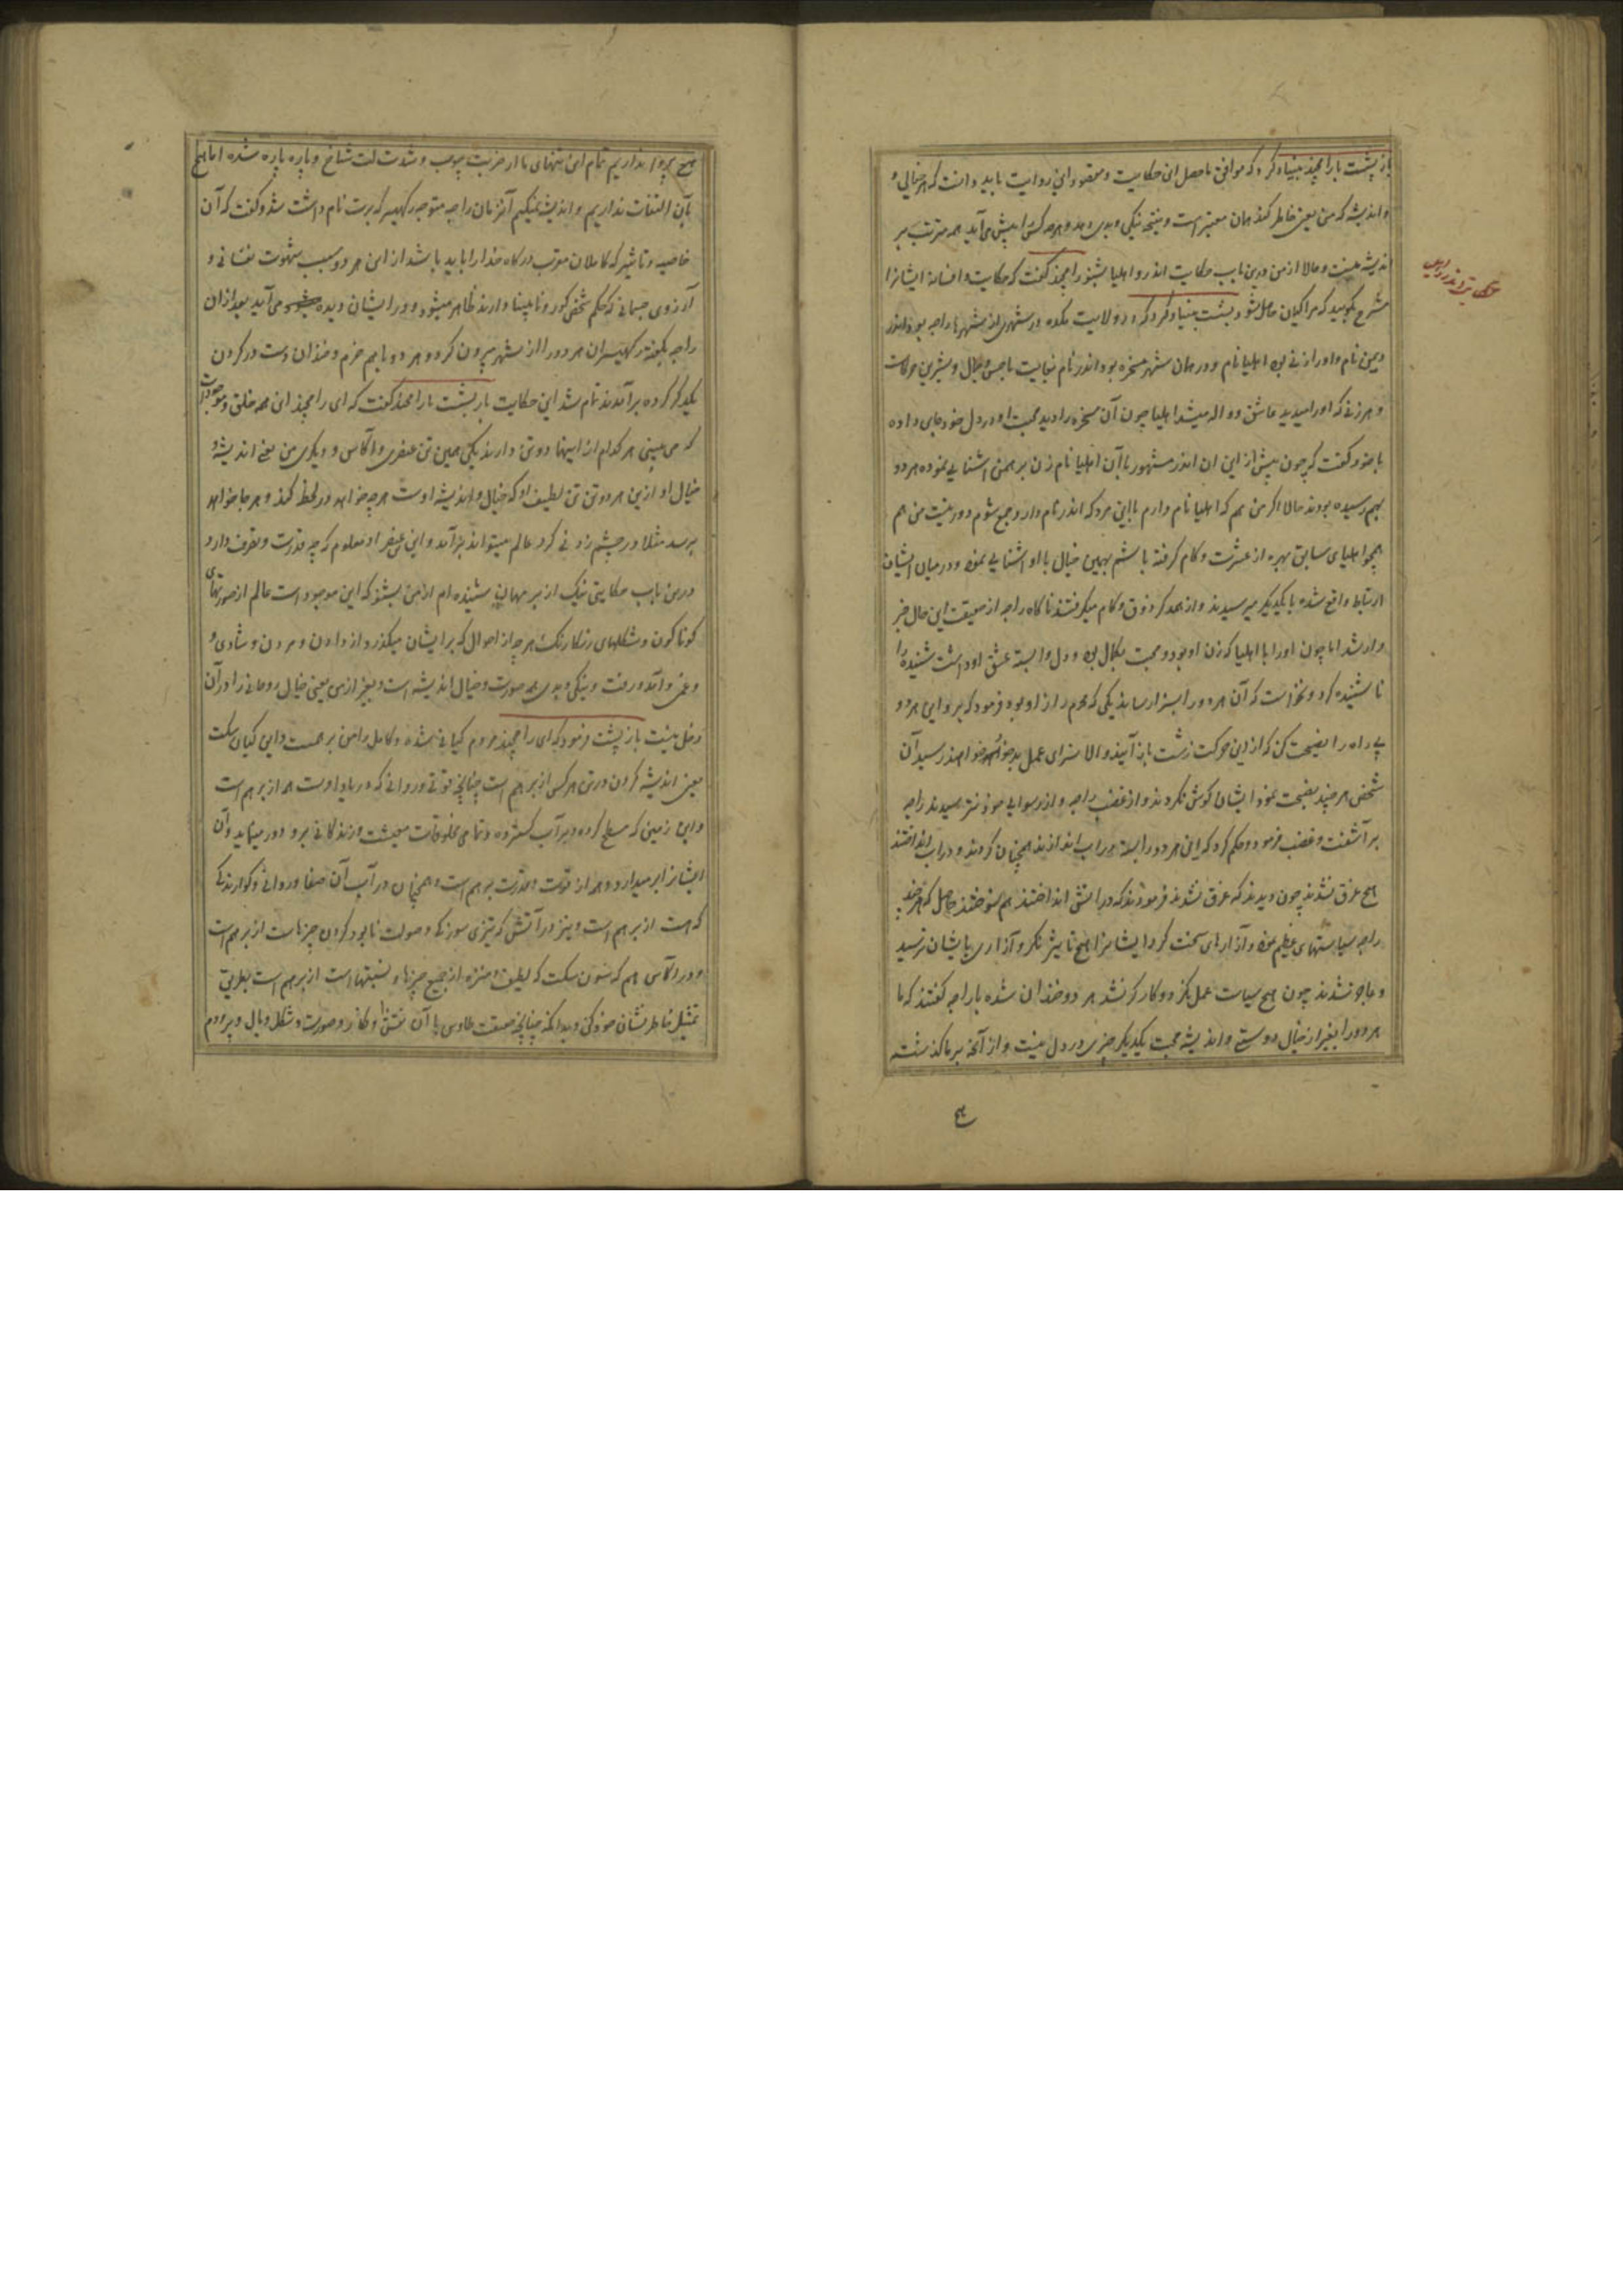 باز بشست با رامچند بنیاد کرد که موافق ماحصل این حکایت و مقصود این روایت باید دانست که هر خیالی و
و اندیشه که من یعنی خاطر کند همان معتبر است و نتیجه نیکی و بدی و هر چه کسی را پیش می آید همه مترتب بر
اندیشه نیست و حالا از من درین باب حکایت اندر و اهلیا بشنو رامچند گفت که حکایت و افسانه ایشانرا
مشرح بگویید که مرا گیان حاصل شود بشست بنیاد کرد که در ولایت مکده در شهری از شهرها راجه بود اندر
دمن نام و او را زنی بود اهلیا نام و در همان شهر مسخره بود اندر نام بغایت با حسن و جمال و شیرین حرکات
و هر زنی که او را میدید عاشق و واله میشد اهلیا چون آن مسخره را دید محبت او در دل خود جای داده
با خود گفت که چون پیش از این آن اندر مشهور با آن اهلیا نام زن برهمن آشنایی نموده هر دو
بهم رسیده بودند حالا اگر من هم که اهلیا نام دارم با این مرد که اندر نام دارد جمع شوم دور نیست من هم
همچو اهلیای سابق بهره از عشرت و کام گرفته باشم بهمین خیال با او آشنایی نمود و در میان ایشان
ارتباط واقع شده با یکدیگر میرسیدند و از همدگر ذوق و کام میگرفتند ناگاه راجه از حقیقت این حال خبر
دار شد اما چون او را با اهلیا که زن او بود و محبت بکمال بود و دل وابسته عشق او داشت شنیده را
ناشنیده کرد و نخواست که آن هر دو را بسزا رساند یکی که محرم راز او بود فرمود که برو این هر دو
بی راه را نصیحت کن که از این حرکت زشت باز آیند والا سزای عمل بد خود خواهند رسید آن
شخص هر چند نصیحت نمود ایشان گوش نکردند و از غضب راجه و از رسوایی خود نترسیدند راجه
برآشفت و غضب فرمود و حکم کرد که این هر دو را بسته در آب اندازند همچنان کردند و در آب انداختند
هیچ غرق نشدند چون دیدند که غرق نشدند فرمودند که در آتش انداختند هم نسوختند حاصل که هر چند
راجه سیاستهای عظیم نمود و آزارهای سخت کرد ایشانرا هیچ تاثیر نکرد و آزاری بایشان نرسید
و عاجز نشدند چون هیچ سیاست عمل نکرد و کارگر نشد هر دو خندان شده با راجه گفتند که ما
هر دو را بغیر از خیال دوستی و اندیشه محبت یکدیگر چیزی در دل نیست و از آنچه بر ما گذشته
حکایت اندر و اهلیا
هیچ پروا نداریم تمام این تنهای ما از ضربت چوب و شدت لت شاخ و پاره پاره شده اما هیچ
بآن التفات نداریم و اندیشه نمیکنیم آنزمان راجه متوجه رکهیسر که برت نام داشت شد و گفت که آن
خاصیه و تاثیر که کاملان مقرب درگاه خدا را باید باشد از این هر دو سبب شهوت نفسانی و
آرزوی جسمانی که حکم شخص کور و نابینا دارند ظاهر میشود و در ایشان دیده می آید بعد از آن
راجه بگفته رکهیسر آن هر دو را از شهر بیرون کرد و هر دو با هم خرم و خندان دست در گردن
یکدگر کرده برآمدند تمام شد این حکایت باز بشست با رامچند گفت که ای رامچند این همه خلق و موجودات
که می بینی هر کدام از اینها دو تن دارند یکی همین تن عنصری و اکاس و دیگری من یعنی اندیشه و
خیال او از این هر دو تن تن لطیف او که خیال و اندیشه اوست هر چه خواهد در لحظه کند و هر جا خواهد
برسد مثلا در چشم زدنی گرد عالم میتواند برآمد و این تن عنصر او معلوم که چه قدرت و تصرف دارد
درین باب حکایتی نیک از برمهان شنیده ام از من بشنو که این موجود است عالم از صورتهای
گوناگون و شکلهای رنگارنگ هر چه از احوال که بر ایشان میگذرد از دادن و مردن و شادی و
و غمی و آمد و رفت و نیکی و بدی همه صورت و خیال اندیشه است و بغیر از من یعنی خیال روحانی را در آن
دخل نیست باز بشست فرمود که ای رامچند مردم گیانی شده و کامل و این برهمست و این گیان سکت
یعنی اندیشه کردن در تن هر کس از برهم است چنانچه قوتی و روانی که در باد اوست هم از برهم است
و این زمین که مسطح کرده و بر آب گسترده و تمامی مخلوقات معیشت و زندگانی برو و در مییابد و آن
ایشانرا بر میدارد و همه از قوت و قدرت برهم است و همچنان در آب آن صفا و روانی و گوارندگی
که هست از برهم است و نیز در آتش که تیزی سوزندگی و صولت نابود کردن چیزهاست از برهم است
و در اکاس هم که سون سکت که لطیف و منزه از جمیع چیزها و نسبتهاست از برهم است بطریق
تمثیل خاطر نشان خود کنی و بدانکه چنانچه حقیقت طاوس با آن نقش و نگار و صورت و شکل و بال و پر و دم